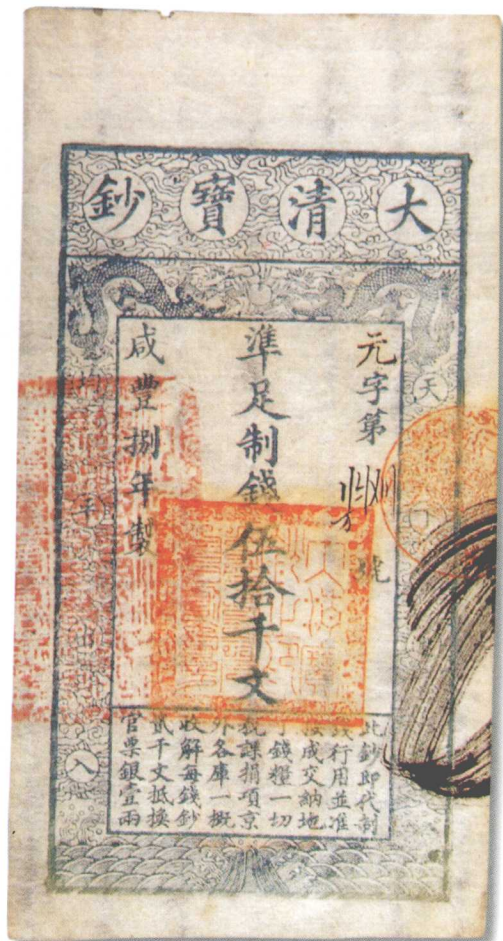 大清寶鈔
天
元字第
號
準足制錢伍拾千文
咸豐捌年製
均平出入
此鈔即代制
錢行用並准
按成交納地
丁錢糧一切
稅課捐項京
外各庫一概
收解每錢鈔
貳千文抵換
官票銀壹兩